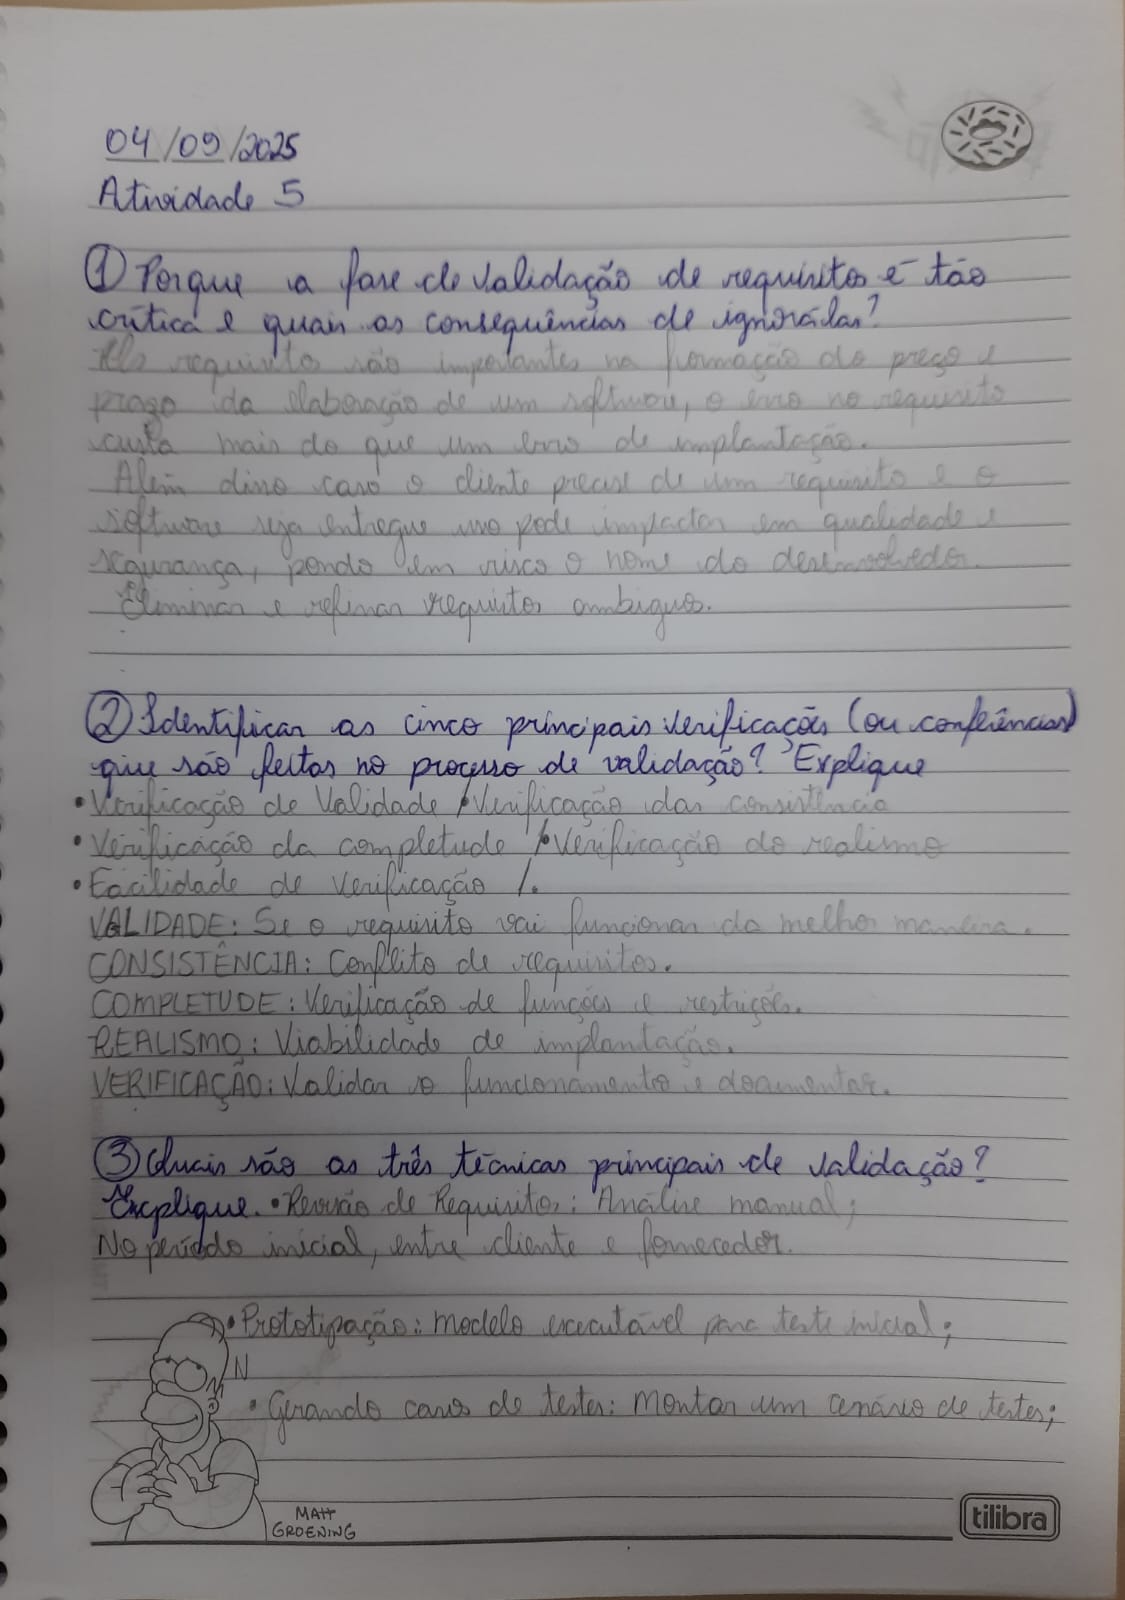 04/09/2025
Atividade 5
① Porque a fase de validação de requisitos é tão
crítica e quais as consequências de ignorálas?
requisitos são importantes na formação do preço e
prazo da elaboração de um software, o erro no requisito
custa mais do que um erro de implantação.
Além disso caso o cliente precise de um requisito e o
software seja entregue isso pode impactar em qualidade e
segurança, pondo em risco o nome do desenvolvedor.
Eliminar e refinar requisitos ambiguos.
② Identificar as cinco principais verificações (ou conferências)
que são feitas no processo de validação? Explique
• Verificação de Validade / • Verificação das consistência
• Verificação da completude / • Verificação do realismo
• Facilidade de Verificação /.
VALIDADE: Se o requisito vai funcionar da melhor maneira.
CONSISTÊNCIA: Conflito de requisitos.
COMPLETUDE: Verificação de funções e restrições.
REALISMO: Viabilidade de implantação.
VERIFICAÇÃO: Validar o funcionamento e documentar.
③ Quais são as três técnicas principais de validação?
Explique. • Revisão de Requisitos: Análise manual;
No período inicial, entre cliente e fornecedor.
• Prototipação: modelo executável para teste inicial;
N
• Gerando casos de testes: Montar um cenário de testes;
MATT
GROENING
tilibra